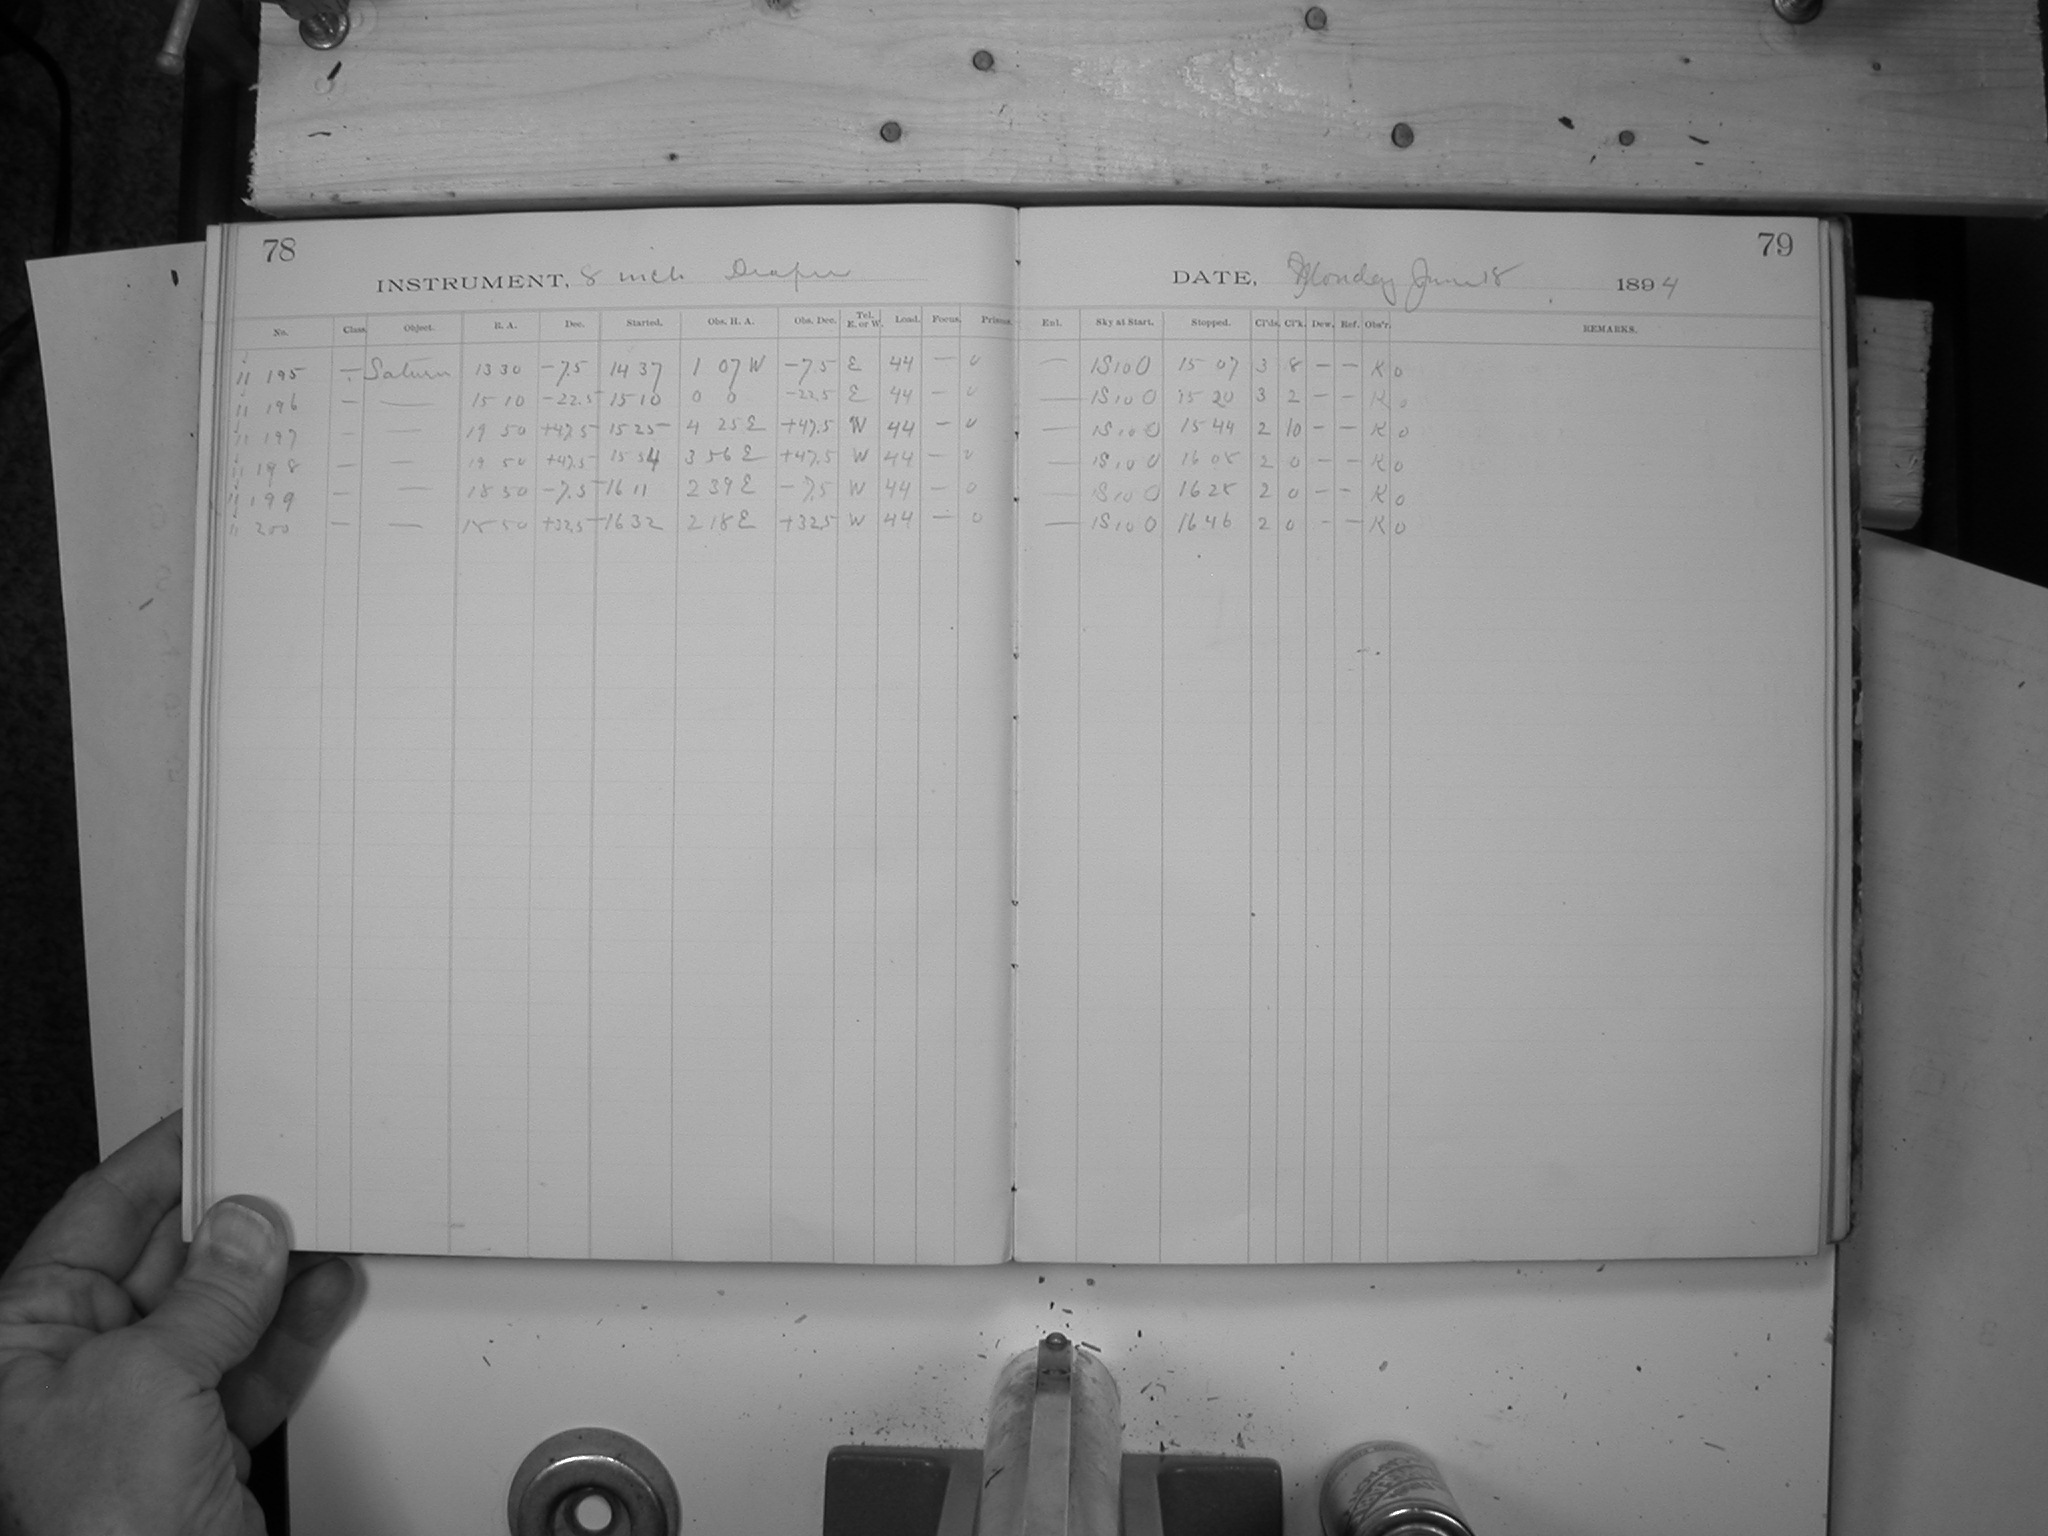 78
INSTRUMENT, 8 inch Draper
No. Class. Object. R. A. Dec. Started. Obs. H. A. Obs. Dec. Tel. E. or W. Load. Focus. Prisms.
195 — Saturn 13 30 −7.5 14 37 1 07 W −7.5 E 44 — 0
196 — — 15 10 −22.5 15 10 0 0 −22.5 E 44 — 0
197 — — 19 50 +47.5 15 25 4 25 E +47.5 W 44 — 0
198 — — 19 50 +47.5 15 54 3 56 E +47.5 W 44 — 0
199 — — 18 50 −7.5 16 11 2 39 E −7.5 W 44 — 0
200 — — 18 50 +32.5 16 32 2 18 E +32.5 W 44 — 0
79
DATE, Monday June 18 1894
Enl. Sky at Start. Stopped. Cl'ds. Cl'k. Dew. Ref. Obs'r. REMARKS.
— 1S10 0 15 07 3 8 — — K 0
— 1S10 0 15 20 3 2 — — K 0
— 1S10 0 15 44 2 10 — — K 0
— 1S10 0 16 08 2 0 — — K 0
— 1S10 0 16 28 2 0 — — K 0
— 1S10 0 16 46 2 0 — — K 0